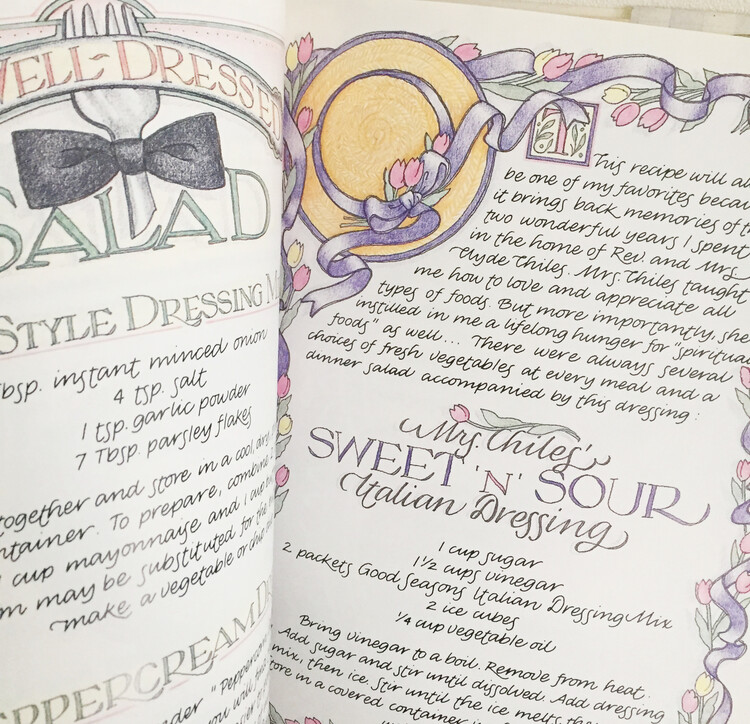 WELL-DRESSED
SALAD
STYLE DRESSING
Tbsp. instant minced onion
4 tsp. salt
1 tsp. garlic powder
7 Tbsp. parsley flakes
together and store in a cool, dry
container. To prepare, combine 2
cup mayonnaise and 1 cup
may be substituted for the
make a vegetable or chip
PEPPERCREAM
"Peppercorn
you will
This recipe will
be one of my favorites
it brings back memories of
two wonderful years I spent
in the home of Rev. and Mrs.
Clyde Chiles. Mrs. Chiles taught
me how to love and appreciate all
types of foods. But more importantly, she
instilled in me a lifelong hunger for "spiritual
foods" as well... There were always several
choices of fresh vegetables at every meal and a
dinner salad accompanied by this dressing:
Mrs. Chiles'
SWEET 'N' SOUR
Italian Dressing
1 cup sugar
1½ cups vinegar
2 packets Good Seasons Italian Dressing Mix
2 ice cubes
¼ cup vegetable oil
Bring vinegar to a boil. Remove from heat.
Add sugar and stir until dissolved. Add dressing
mix, then ice. Stir until the ice melts,
in a covered container